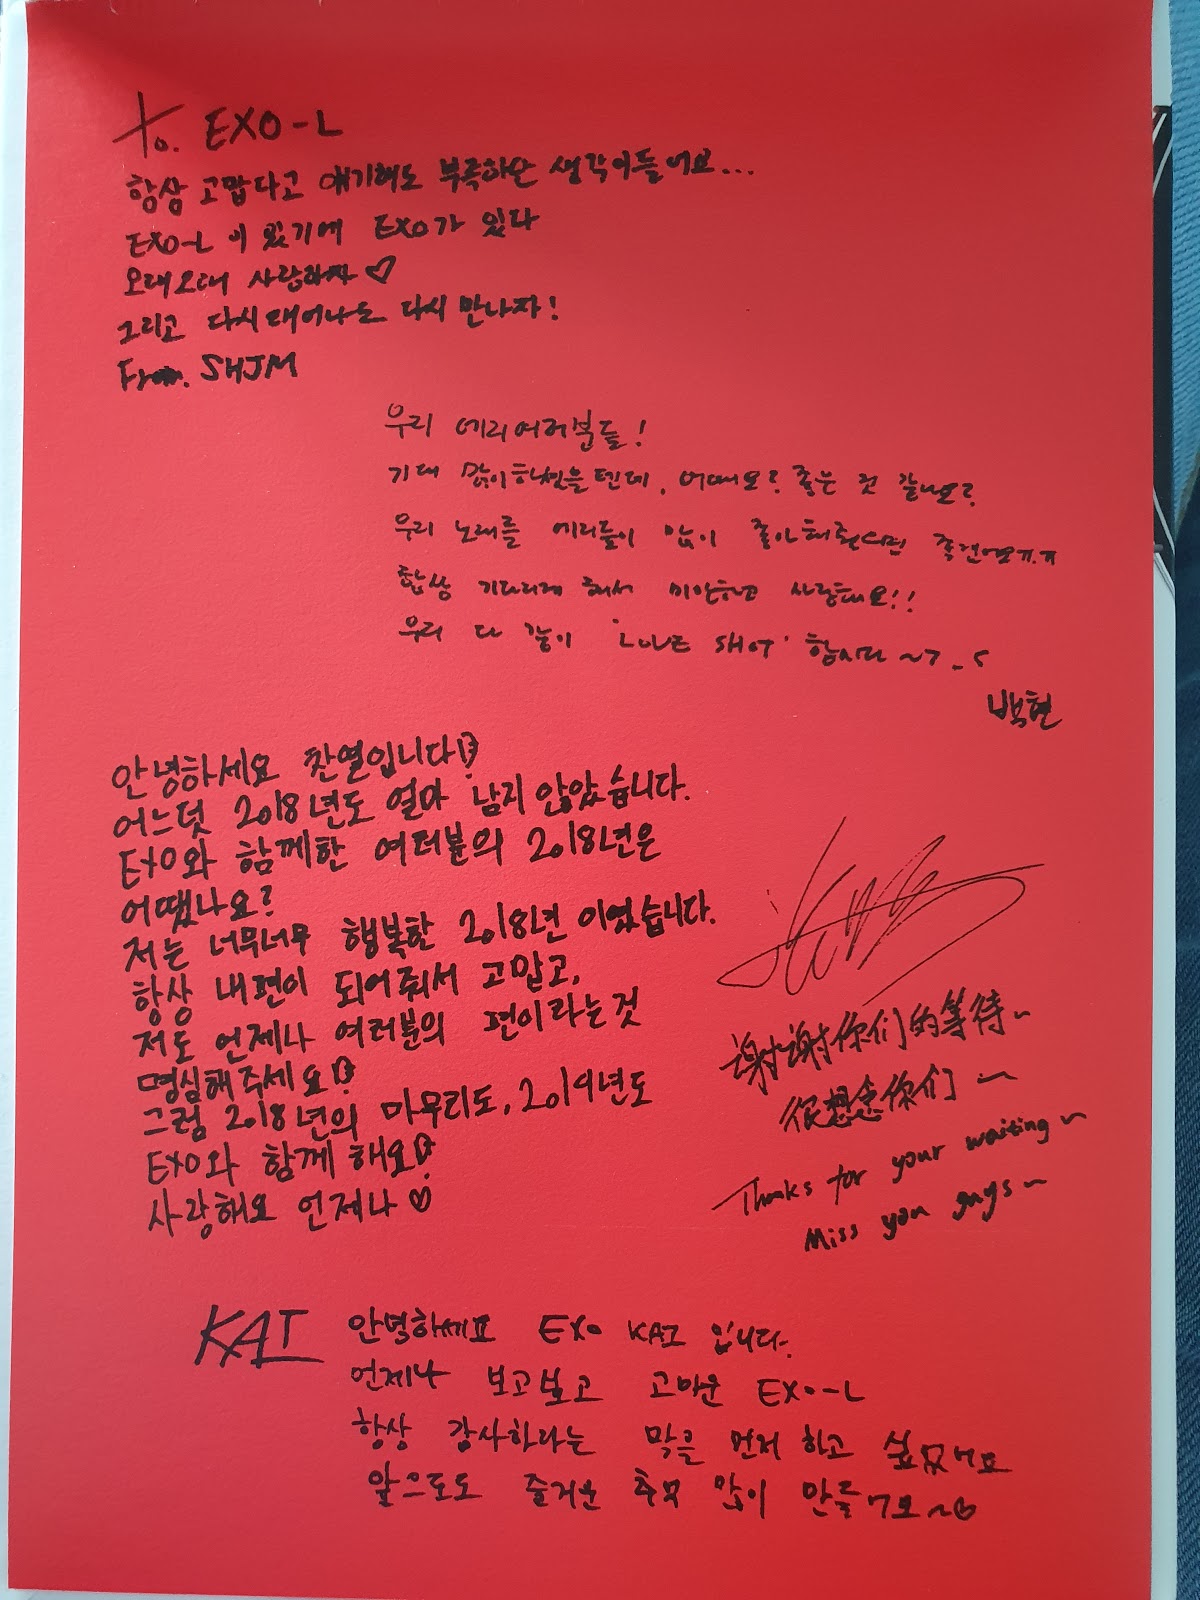 To. EXO-L
항상 고맙다고 얘기해도 부족하단 생각이들어요...
EXO-L이 있기에 EXO가 있다
오래오래 사랑하자♡
그리고 다시태어나도 다시 만나자!
From. SHJM
우리 에리여러분들!
기대 많이하셨을텐데, 어때요? 좋은 것 같나요?
우리 노래를 에리들이 많이 좋아해줬으면 좋겠어요ㅠㅠ
항상 기다리게 해서 미안하고 사랑해요!!
우리 다 같이 'LOVE SHOT' 합시다~
백현
안녕하세요 찬열입니다!
어느덧 2018년도 얼마 남지 않았습니다.
EXO와 함께한 여러분의 2018년은
어땠나요?
저는 너무너무 행복한 2018년 이였습니다.
항상 내편이 되어줘서 고맙고,
저도 언제나 여러분의 편이라는것
명심해주세요!
그럼 2018년의 마무리도, 2019년도
EXO와 함께 해요!
사랑해요 언제나♡
谢谢你们的等待~
很想念你们~
Thanks for your waiting~
Miss you guys~
KAI
안녕하세요 EXO KAI 입니다.
언제나 보고보고 고마운 EXO-L
항상 감사하라는 말을 먼저 하고 싶었어요
앞으로도 즐거운 추억 많이 만들어요~♡